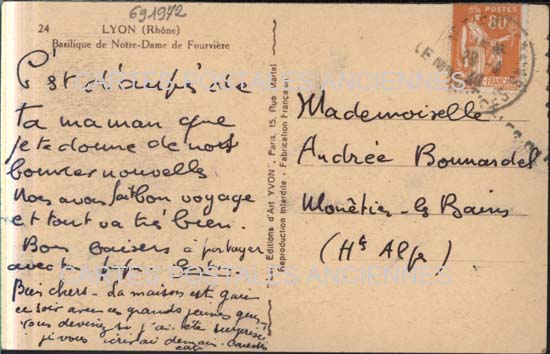 691972
24 LYON (Rhône)
Basilique de Notre-Dame de Fourvière
C'est d'auprès de
ta maman que
je te donne de nos
bonnes nouvelles
Nous avons fait bon voyage
et tout va très bien.
Bons baisers à partager
avec
Bien chers - La maison est gaie
ce soir avec ces grands jeunes gens -
vous devinez si j'ai été surprise
je vous écrirai demain.
Editions d'Art YVON", Paris, 15, Rue Martel
Reproduction Interdite - Fabrication Française
POSTES
80c
Mademoiselle
Andrée Bonnardel
Monêtier-les Bains
(Htes Alpes)
CARTES POSTALES ANCIENNES
CARTES POSTALES ANCIENNES